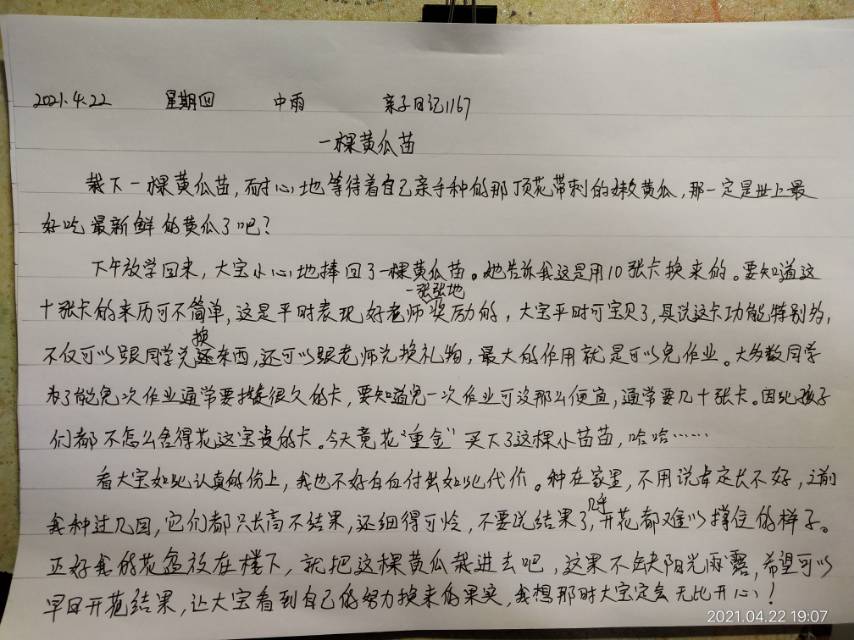 2021.4.22 星期四 中雨 亲子日记1167
一棵黄瓜苗
栽下一棵黄瓜苗，耐心地等待着自己亲手种的那顶花带刺的嫩黄瓜，那一定是世上最
好吃最新鲜的黄瓜了吧？
下午放学回来，大宝小心地捧回了一棵黄瓜苗。她告诉我这是用10张卡换来的。要知道这
一张张地
十张卡的来历可不简单，这是平时表现好老师奖励的，大宝平时可宝贝了，具说这卡功能特别为，
换
不仅可以跟同学兑还东西，还可以跟老师兑换礼物，最大的作用就是可以免作业。大多数同学
为了能免次作业通常要攒很久的卡，要知道免一次作业可没那么便宜，通常要几十张卡。因此孩子
们都不怎么舍得花这宝贵的卡。今天竟花“重金”买下了这棵小苗苗，哈哈……
看大宝如此认真的份上，我也不好白白付出如此代价。种在家里，不用说肯定长不好，之前
我种过几回，它们都只长高不结果，还细得可怜，不要说结果了，几乎开花都难以撑住的样子。
正好我的花盆放在楼下，就把这棵黄瓜栽进去吧，这果不缺阳光雨露，希望可以
早日开花结果，让大宝看到自己的努力换来的果实，我想那时大宝定会无比开心！
2021.04.22 19:07